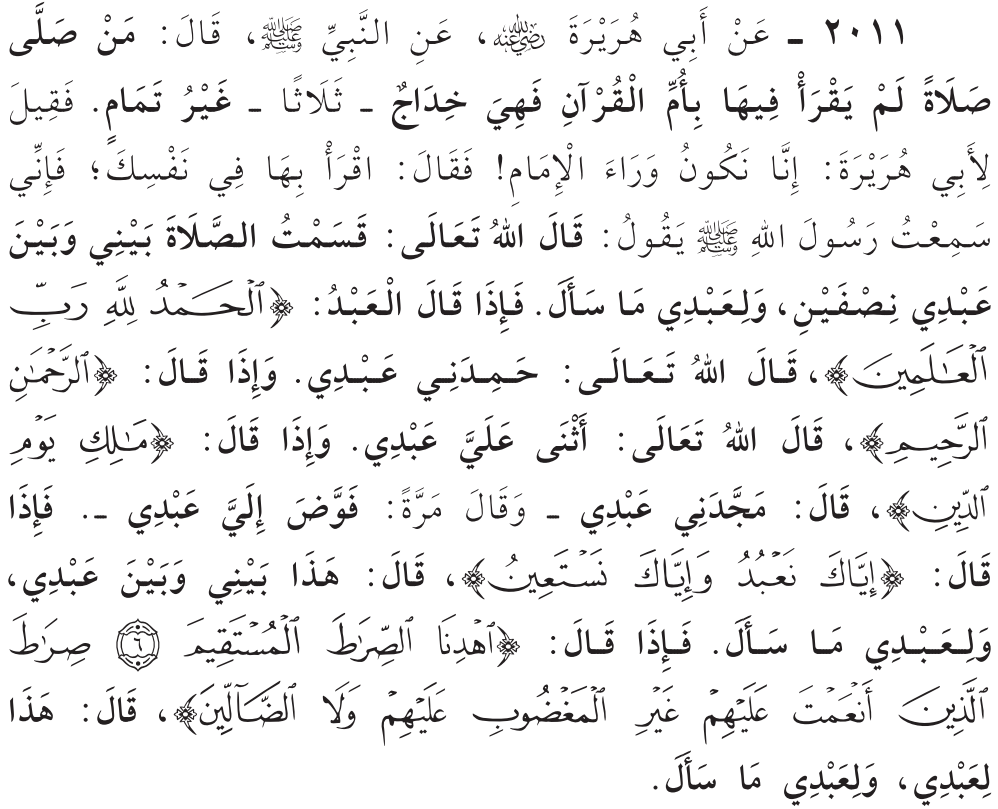 ٢٠١١ ـ عَنْ أَبِي هُرَيْرَةَ رضي الله عنه، عَنِ النَّبِيِّ ﷺ، قَالَ: مَنْ صَلَّى
صَلَاةً لَمْ يَقْرَأْ فِيهَا بِأُمِّ الْقُرْآنِ فَهِيَ خِدَاجٌ ـ ثَلَاثًا ـ غَيْرُ تَمَامٍ. فَقِيلَ
لِأَبِي هُرَيْرَةَ: إِنَّا نَكُونُ وَرَاءَ الْإِمَامِ! فَقَالَ: اقْرَأْ بِهَا فِي نَفْسِكَ؛ فَإِنِّي
سَمِعْتُ رَسُولَ اللهِ ﷺ يَقُولُ: قَالَ اللهُ تَعَالَى: قَسَمْتُ الصَّلَاةَ بَيْنِي وَبَيْنَ
عَبْدِي نِصْفَيْنِ، وَلِعَبْدِي مَا سَأَلَ. فَإِذَا قَالَ الْعَبْدُ: ﴿ٱلْحَمْدُ لِلَّهِ رَبِّ
ٱلْعَـٰلَمِينَ﴾، قَالَ اللهُ تَعَالَى: حَمِدَنِي عَبْدِي. وَإِذَا قَالَ: ﴿ٱلرَّحْمَـٰنِ
ٱلرَّحِيمِ﴾، قَالَ اللهُ تَعَالَى: أَثْنَى عَلَيَّ عَبْدِي. وَإِذَا قَالَ: ﴿مَـٰلِكِ يَوْمِ
ٱلدِّينِ﴾، قَالَ: مَجَّدَنِي عَبْدِي ـ وَقَالَ مَرَّةً: فَوَّضَ إِلَيَّ عَبْدِي ـ. فَإِذَا
قَالَ: ﴿إِيَّاكَ نَعْبُدُ وَإِيَّاكَ نَسْتَعِينُ﴾، قَالَ: هَذَا بَيْنِي وَبَيْنَ عَبْدِي،
وَلِعَبْدِي مَا سَأَلَ. فَإِذَا قَالَ: ﴿ٱهْدِنَا ٱلصِّرَٰطَ ٱلْمُسْتَقِيمَ ٦ صِرَٰطَ
ٱلَّذِينَ أَنْعَمْتَ عَلَيْهِمْ غَيْرِ ٱلْمَغْضُوبِ عَلَيْهِمْ وَلَا ٱلضَّآلِّينَ﴾، قَالَ: هَذَا
لِعَبْدِي، وَلِعَبْدِي مَا سَأَلَ.